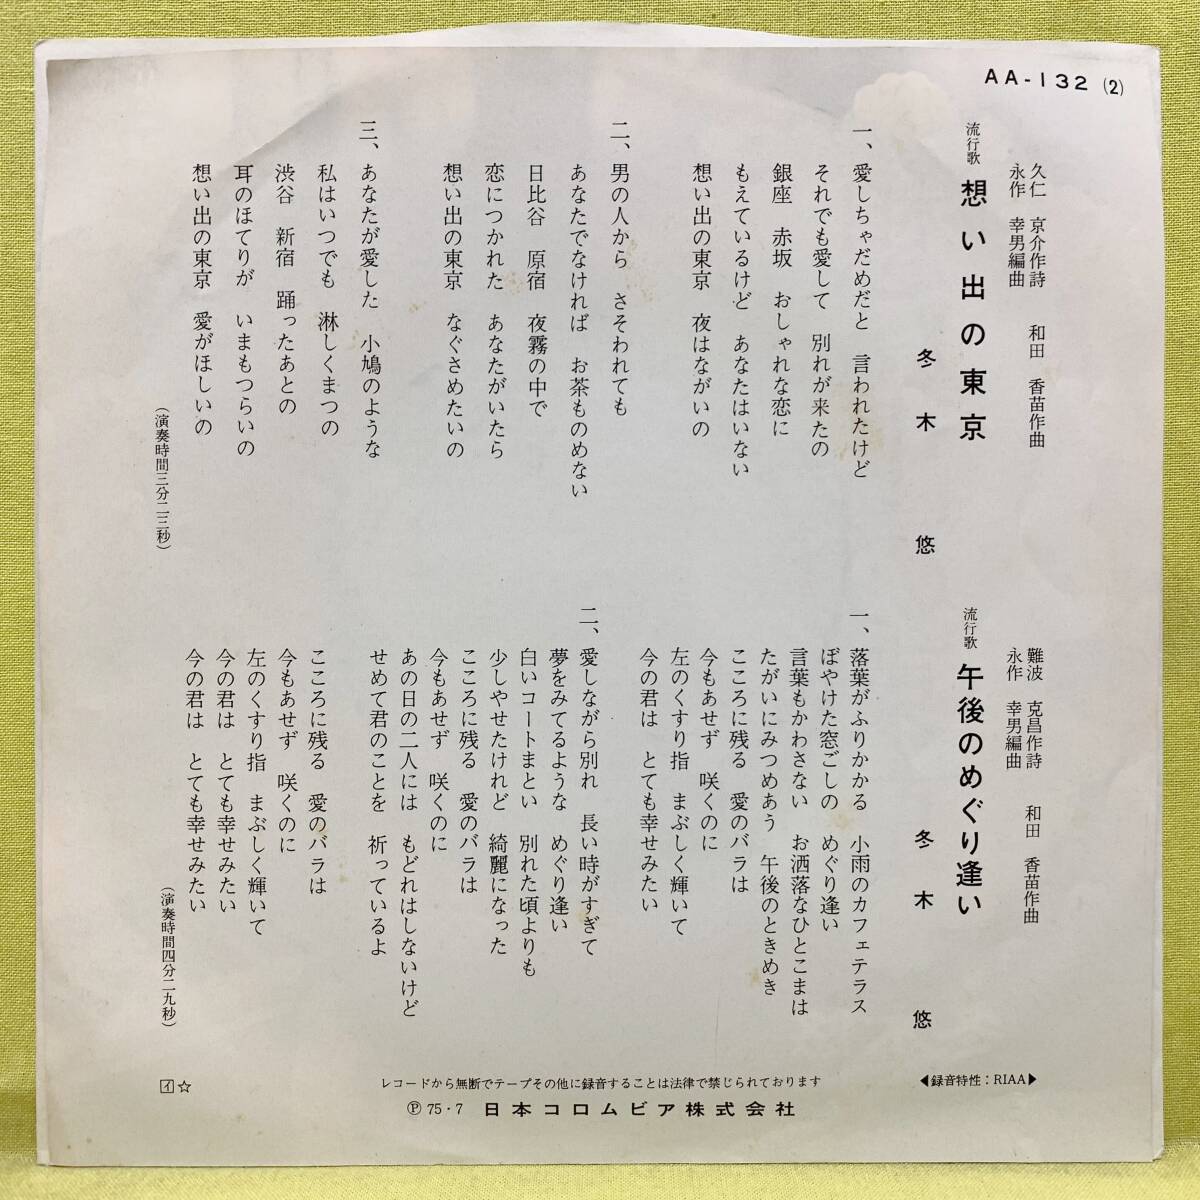 AA-132 (2)
久仁 京介作詩
永作 幸男編曲
和田 香苗作曲
流行歌 想い出の東京
冬木 悠
一、愛しちゃだめだと 言われたけど
それでも愛して 別れが来たの
銀座 赤坂 おしゃれな恋に
もえているけど あなたはいない
想い出の東京 夜はながいの
二、男の人から さそわれても
あなたでなければ お茶ものめない
日比谷 原宿 夜霧の中で
恋につかれた あなたがいたら
想い出の東京 なぐさめたいの
三、あなたが愛した 小鳩のような
私はいつでも 淋しくまつの
渋谷 新宿 踊ったあとの
耳のほてりが いまもつらいの
想い出の東京 愛がほしいの
(演奏時間三分二三秒)
難波 克昌作詩
永作 幸男編曲
和田 香苗作曲
流行歌 午後のめぐり逢い
冬木 悠
一、落葉がふりかかる 小雨のカフェテラス
ぼやけた窓ごしの めぐり逢い
言葉もかわさない お洒落なひとこまは
たがいにみつめあう 午後のときめき
こころに残る 愛のバラは
今もあせず 咲くのに
左のくすり指 まぶしく輝いて
今の君は とても幸せみたい
二、愛しながら別れ 長い時がすぎて
夢をみてるような めぐり逢い
白いコートまとい 別れた頃よりも
少しやせたけれど 綺麗になった
こころに残る 愛のバラは
今もあせず 咲くのに
あの日の二人には もどれはしないけど
せめて君のことを 祈っているよ
こころに残る 愛のバラは
今もあせず 咲くのに
左のくすり指 まぶしく輝いて
今の君は とても幸せみたい
今の君は とても幸せみたい
(演奏時間四分二九秒)
◀録音特性：RIAA▶
レコードから無断でテープその他に録音することは法律で禁じられております
イ☆
Ⓟ75・7 日本コロムビア株式会社